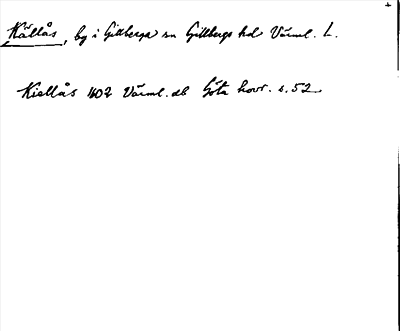 Källås, by i Gillberga sn Gillbergs hd Värml. L.
Kiellås 1607 Värml. db Göta hovr. s. 52